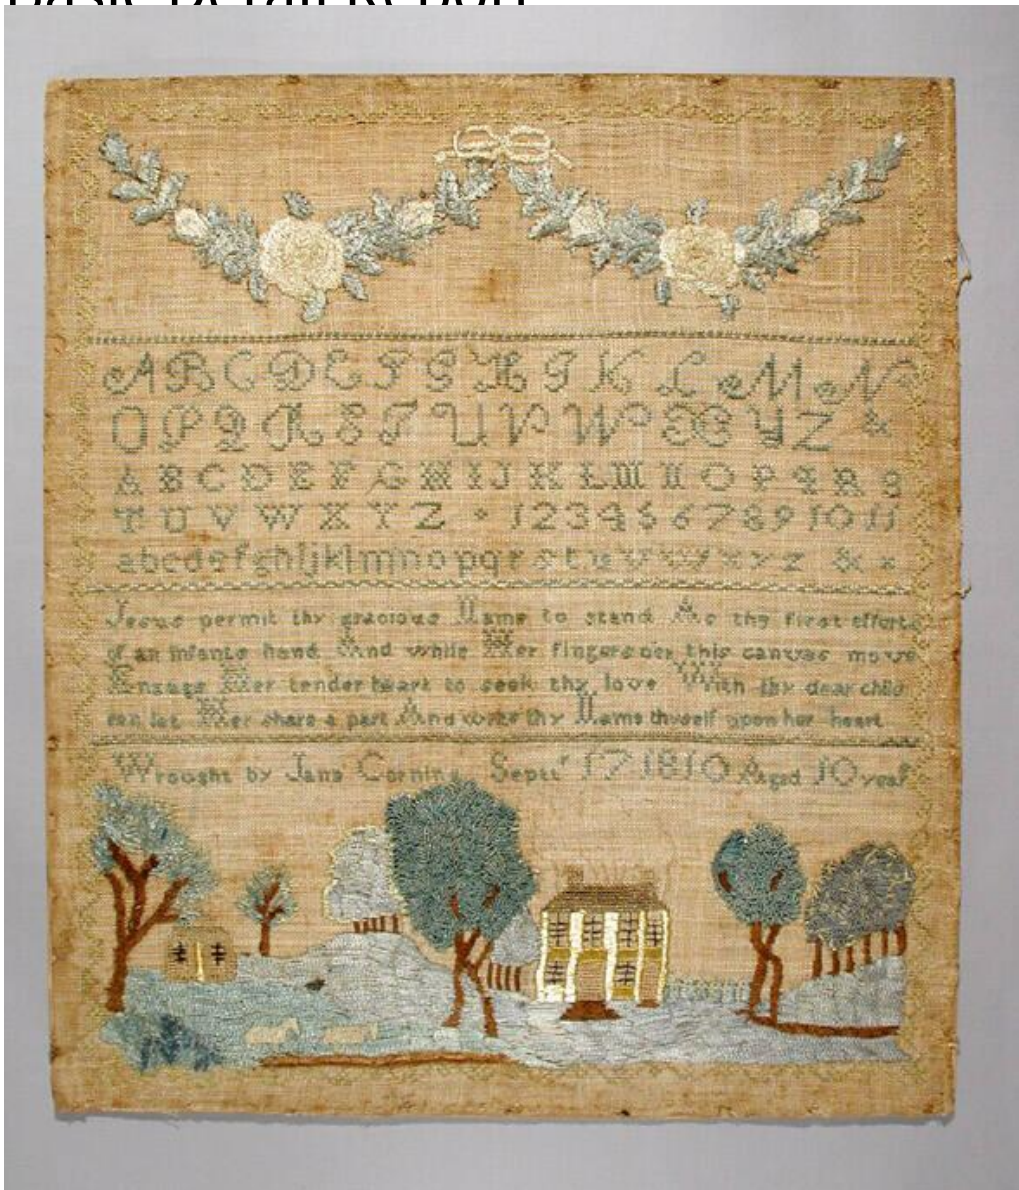 Basic Detail Report
A B C D E F G H I K L M N
O P Q R S T U V W X Y Z &
A B C D E F G H I J K L M N O P Q R S
T U V W X Y Z 1 2 3 4 5 6 7 8 9 10 11
a b c d e f g h i j k l m n o p q r s t u v w x y z &
Jesus permit thy gracious Name to stand As thy first efforts
of an infants hand And while Her fingers oer this canvas move
Engage Her tender heart to seek thy love With thy dear child
ren let Her share a part And write thy Name thyself upon her heart
Wrought by Jane Corning Septtr 17 1810 Aged 10 years